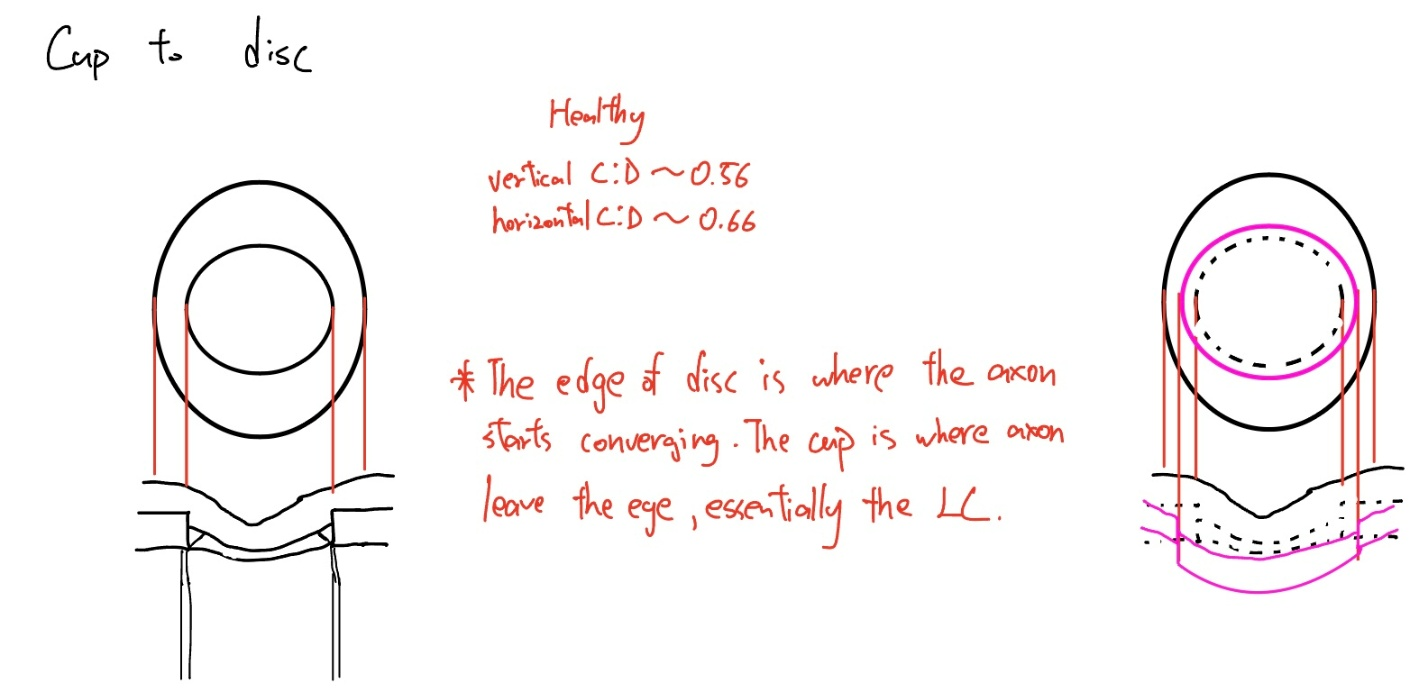 Cup to disc
Healthy
vertical C:D ~ 0.56
horizontal C:D ~ 0.66
* The edge of disc is where the axon
starts converging. The cup is where axon
leave the eye, essentially the LC.